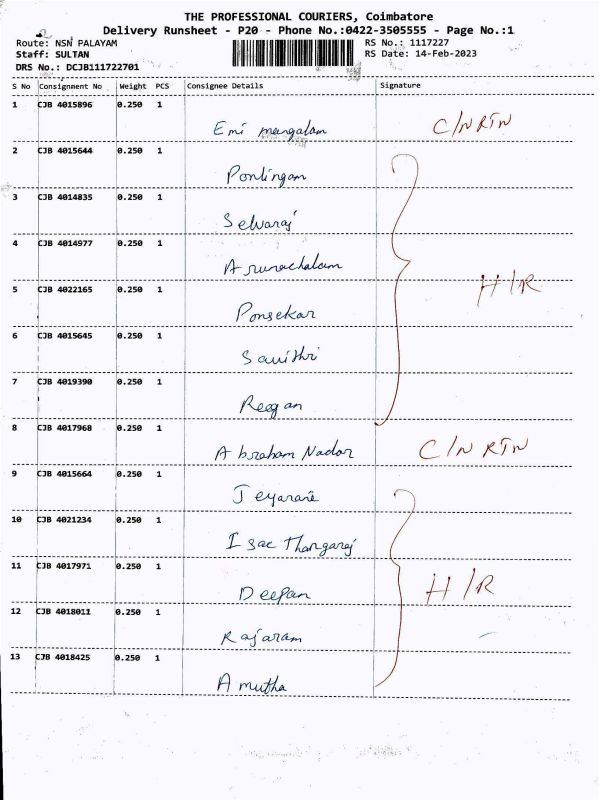 THE PROFESSIONAL COURIERS, Coimbatore
Delivery Runsheet - P20 - Phone No.:0422-3505555 - Page No.:1
Route: NSN PALAYAM RS No.: 1117227
Staff: SULTAN RS Date: 14-Feb-2023
DRS No.: DCJB111722701
S No Consignment No Weight PCS Consignee Details Signature
1 CJB 4015896 0.250 1
Emi mangalam C/N RTN
2 CJB 4015644 0.250 1
Ponlingam
3 CJB 4014835 0.250 1
Selvaraj
4 CJB 4014977 0.250 1
Arunachalam
5 CJB 4022165 0.250 1 H/R
Ponsekar
6 CJB 4015645 0.250 1
Savithri
7 CJB 4019390 0.250 1
Reegan
8 CJB 4017968 0.250 1
Abraham Nadar C/N RTN
9 CJB 4015664 0.250 1
Jeyarani
10 CJB 4021234 0.250 1
Isac Thangaraj
11 CJB 4017971 0.250 1
Deepan H/R
12 CJB 4018011 0.250 1
Rajaram
13 CJB 4018425 0.250 1
Amutha